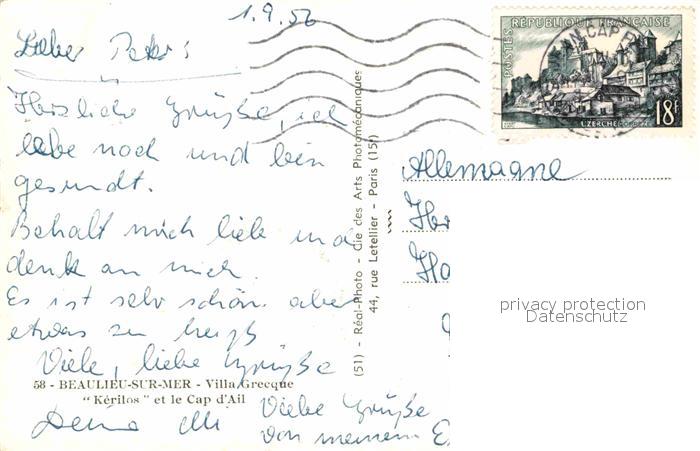 1.9.56
Lieber Peter!
Herzliche Grüße, ich
lebe noch und bin
gesundt.
Behalt mich lieb und
denk an mich.
Es ist sehr schön aber
etwas zu heiß
Viele, liebe Grüße
58 - BEAULIEU-SUR-MER - Villa Grecque
"Kérilos" et le Cap d'Ail
Deine
Viele Grüße
von meinem
(51) - Réal-Photo - Cie des Arts Photomécaniques
44, rue Letellier - Paris (15e)
POSTES RÉPUBLIQUE FRANÇAISE
CAP
UZERCHE
18F
Allemagne
privacy protection
Datenschutz